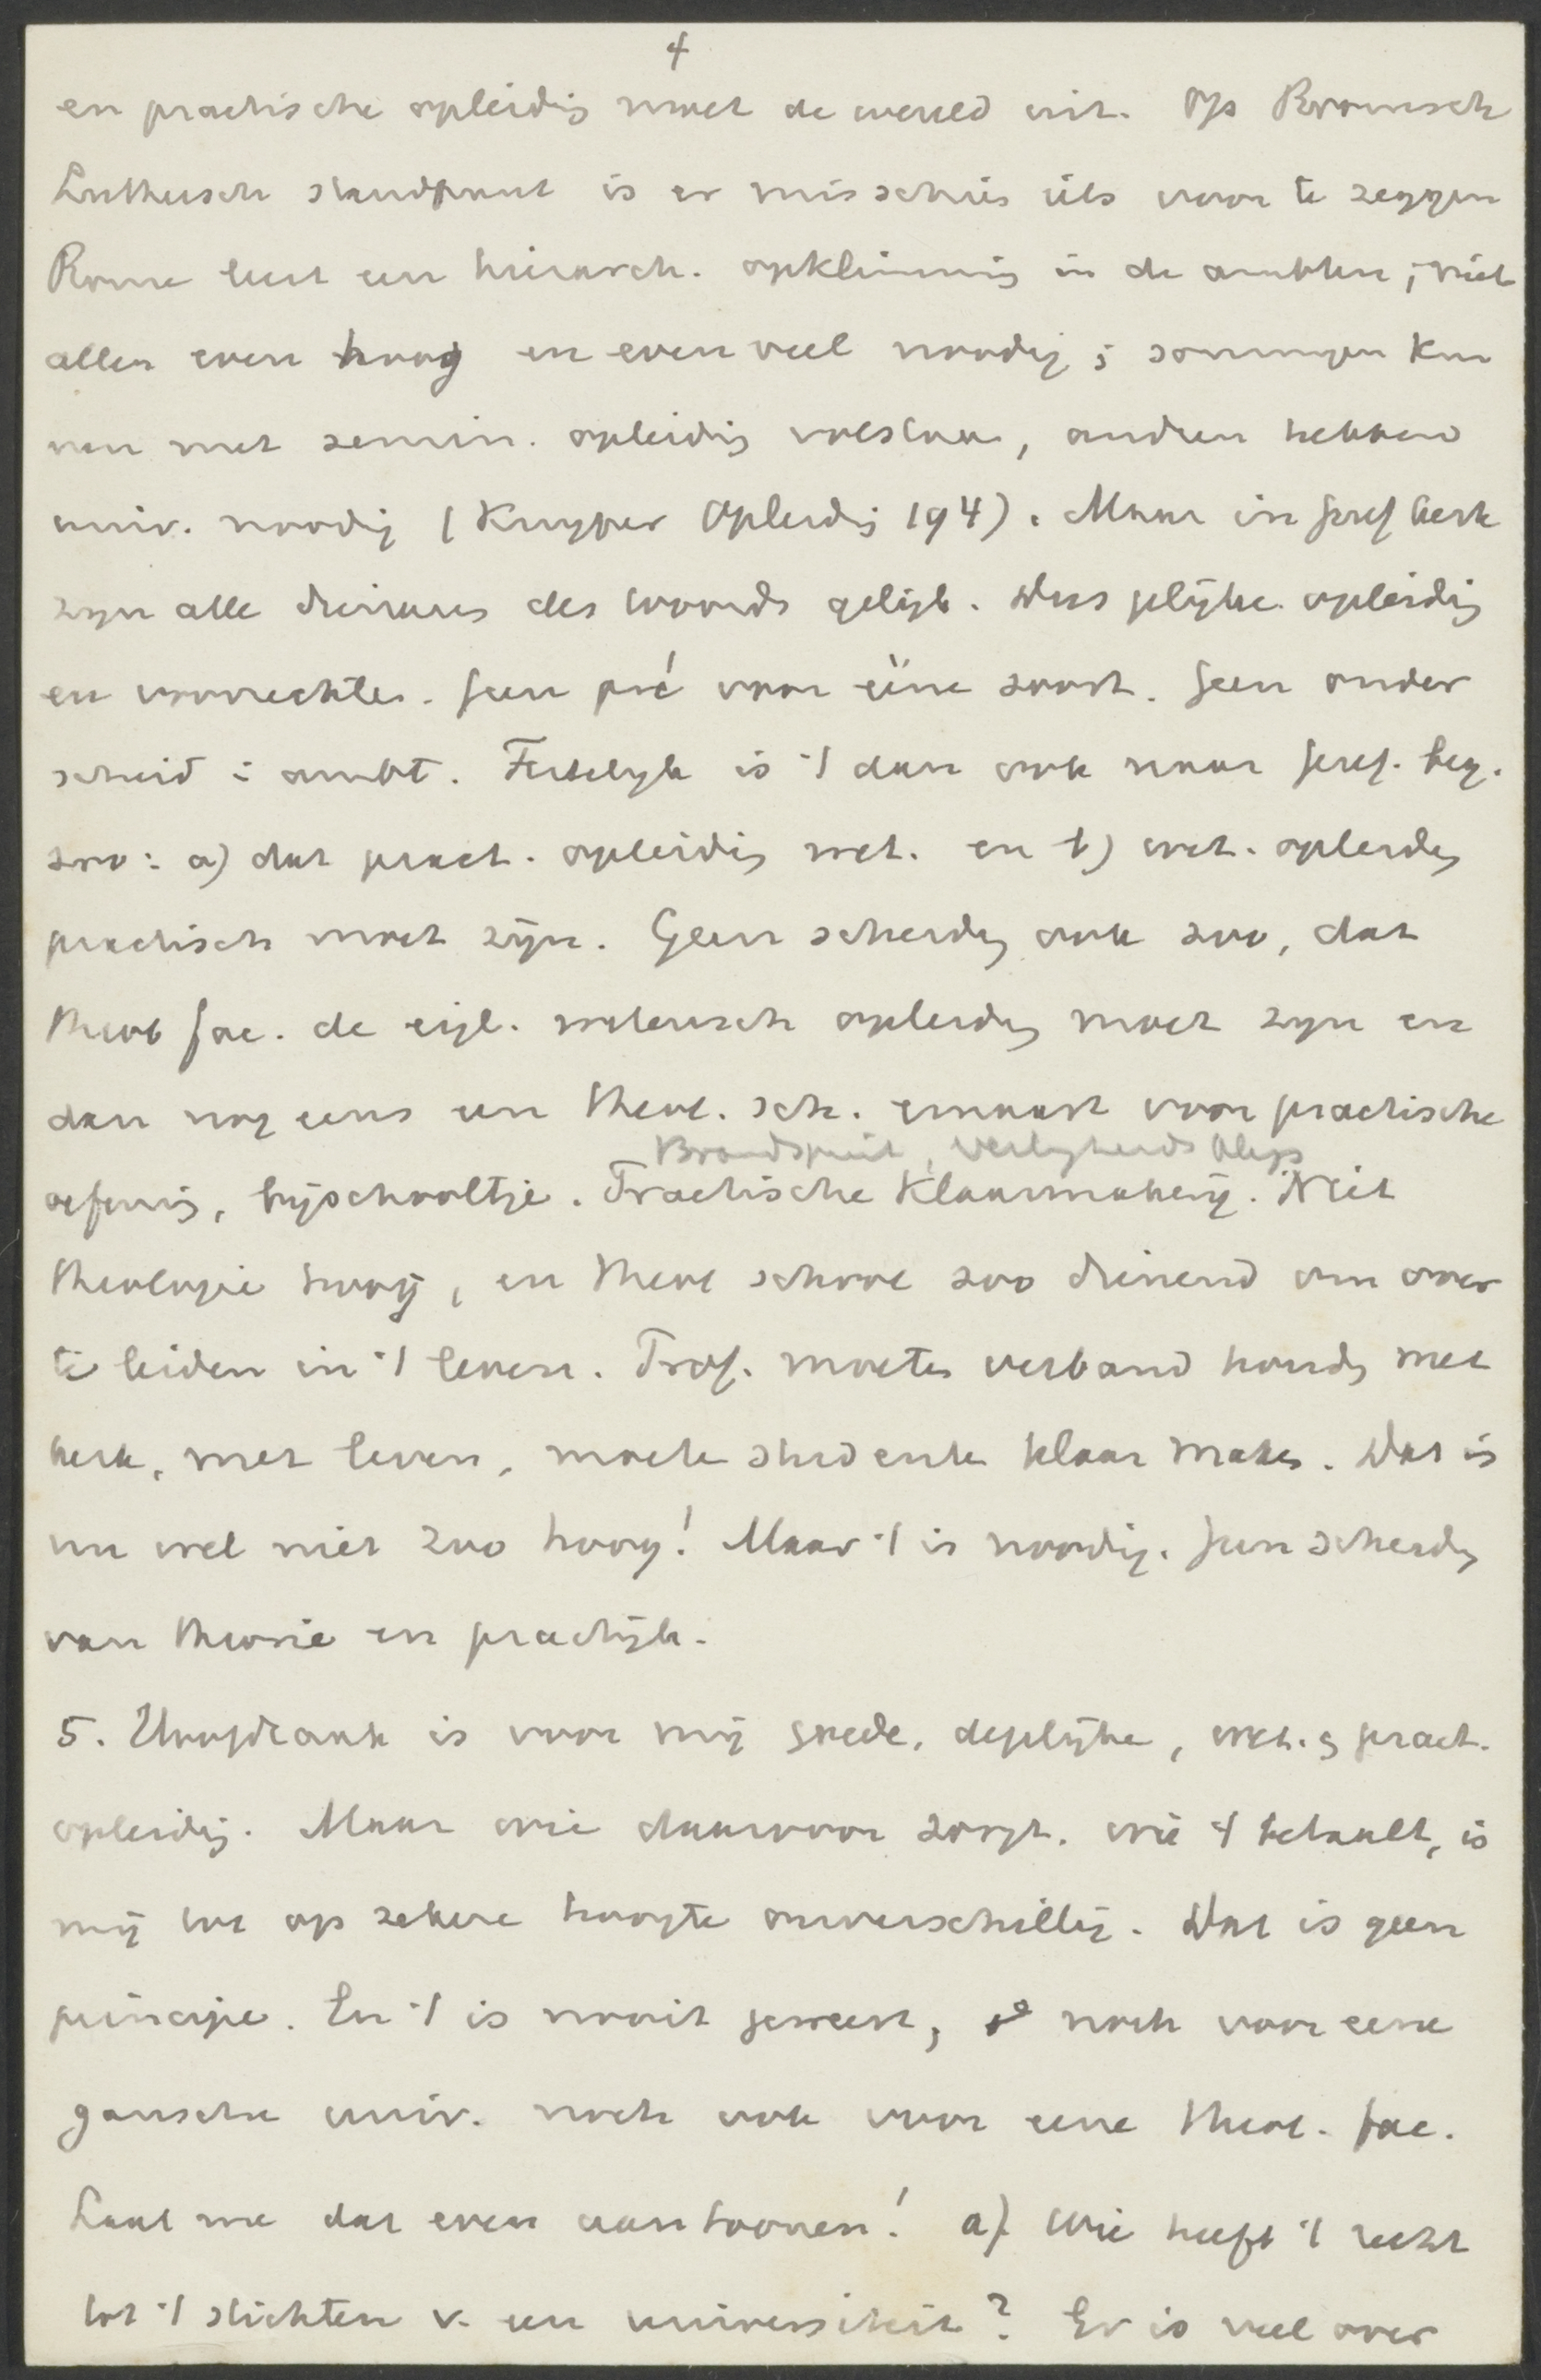 4
en practische opleidig moet de wereld uit. Op Roomsch
Luthersch standpunt is er misschien iets voor te zeggen
Rome leert een hierarch. opklimmig in de ambten; niet
allen even hoog en even veel noodig; sommigen kun
nen met semin. opleidig volstaan, andren hebben
univ. noodig (Kuyper Opleidig 194). Maar in geref kerk
zyn alle dienaars des woords gelijk. Dus gelijke opleidig
en voorrechten. Geen pré voor eëne soort. Geen onder
scheid i ambt. Feitelyk is 't dan ook naar geref. beg.
zoo: a) dat pract. opleidig wet. en b) wet. opleidg
practisch moet zijn. Geen scheidg ook zoo, dat
theol fac. de eigl. wetensch opleidg moet zyn en
dan nog eens een theol. sch. ernaast voor practische
Brandspuit, Veiligheidsklep
oefenig, bijschooltje. Practische klaarmakerij. Niet
theologie hoog, en theol school zoo dienend om over
te leiden in 't leven. Prof. moeten verband houdg met
kerk, met leven, moete studente klaar maken. Dat is
nu wel niet zoo hoog! Maar 't is noodig. Geen scheidg
van theorie en practijk.
5. Hoofdzaak is voor mij goede, deglijke, wet. & pract.
opleidig. Maar wie daarvoor zorgt. wie 't betaalt, is
mij tot op zekere hoogte onverschillig. Dat is geen
principe. En 't is nooit geweest, noch voor eene
gansche univ. noch ook voor eene theol. fac.
Laat me dat even aantoonen! a) Wie heeft 't recht
tot 't stichten v. een universiteit? Er is veel over